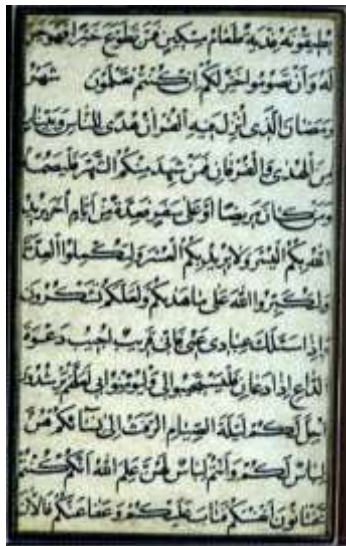 يطيقونه فدية طعام مسكين فمن تطوع خيرا فهو خير
له وأن تصوموا خير لكم إن كنتم تعلمون شهر
رمضان الذي أنزل فيه القرآن هدى للناس وبينات
من الهدى والفرقان فمن شهد منكم الشهر فليصمه
ومن كان مريضا أو على سفر فعدة من أيام أخر يريد
الله بكم اليسر ولا يريد بكم العسر ولتكملوا العدة
ولتكبروا الله على ما هديكم ولعلكم تشكرون
وإذا سئلك عبادي عني فإني قريب أجيب دعوة
الداع إذا دعان فليستجيبوا لي وليؤمنوا بي لعلهم يرشدون
أحل لكم ليلة الصيام الرفث إلى نسائكم هن
لباس لكم وأنتم لباس لهن علم الله أنكم كنتم
تختانون أنفسكم فتاب عليكم وعفا عنكم فالآن